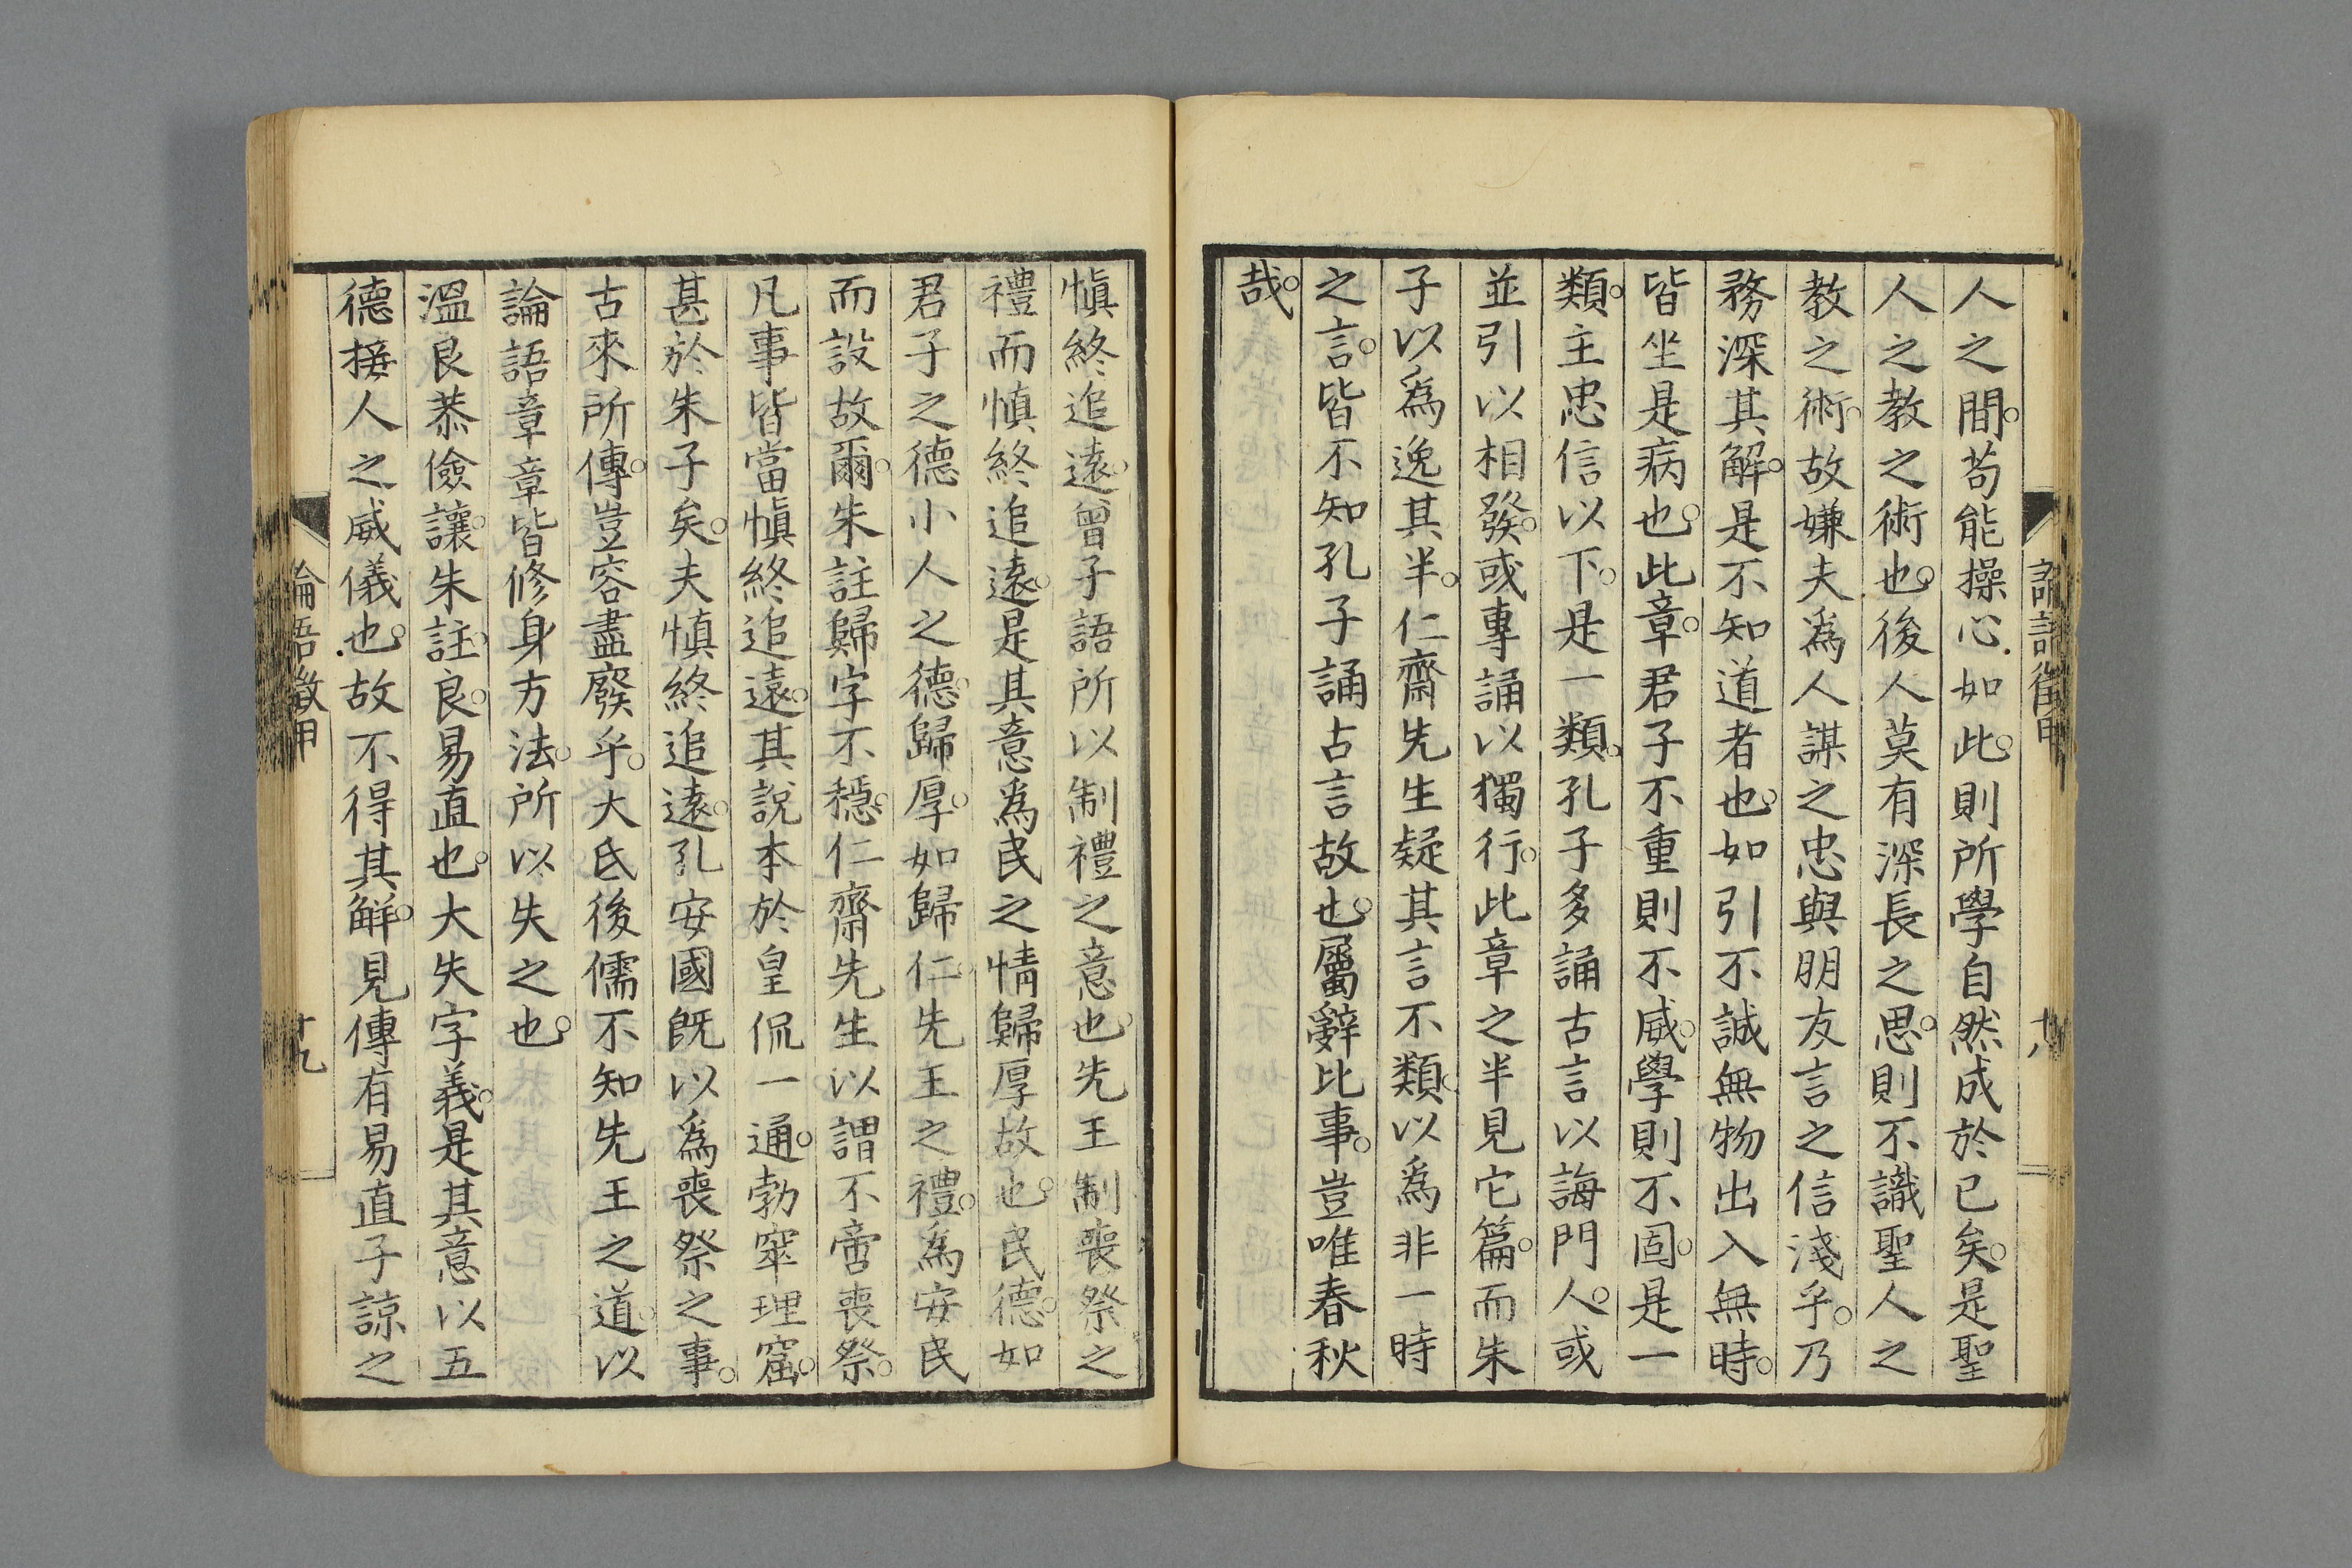 人之間。苟能操心如此。則所學自然成於己矣。是聖
人之教之術也。後人莫有深長之思。則不識聖人之
教之術。故嫌夫爲人謀之忠與朋友言之信淺乎。乃
務深其解。是不知道者也。如引不誠無物出入無時。
皆坐是病也。此章。君子不重則不威。學則不固。是一
類。主忠信以下。是一類。孔子多誦古言以誨門人。或
並引以相發。或專誦以獨行。此章之半見它篇。而朱
子以爲逸其半。仁齋先生疑其言不類。以爲非一時
之言。皆不知孔子誦古言故也。屬辭比事。豈唯春秋
哉。
論語徵甲
十八
愼終追遠。曾子語所以制禮之意也。先王制喪祭之
禮而愼終追遠。是其意爲民之情歸厚故也。民德。如
君子之德小人之德。歸厚。如歸仁。先王之禮。爲安民
而設故爾。朱註歸字不穩。仁齋先生以謂不啻喪祭。
凡事皆當愼終追遠。其說本於皇侃一通。勃窣理窟。
甚於朱子矣。夫愼終追遠。孔安國既以爲喪祭之事。
古來所傳。豈容盡廢乎。大氐後儒不知先王之道。以
論語章章皆修身方法。所以失之也。
溫良恭儉讓。朱註。良。易直也。大失字義。是其意以五
德接人之威儀也。故不得其解。見傳有易直子諒之
論語徵甲
十九